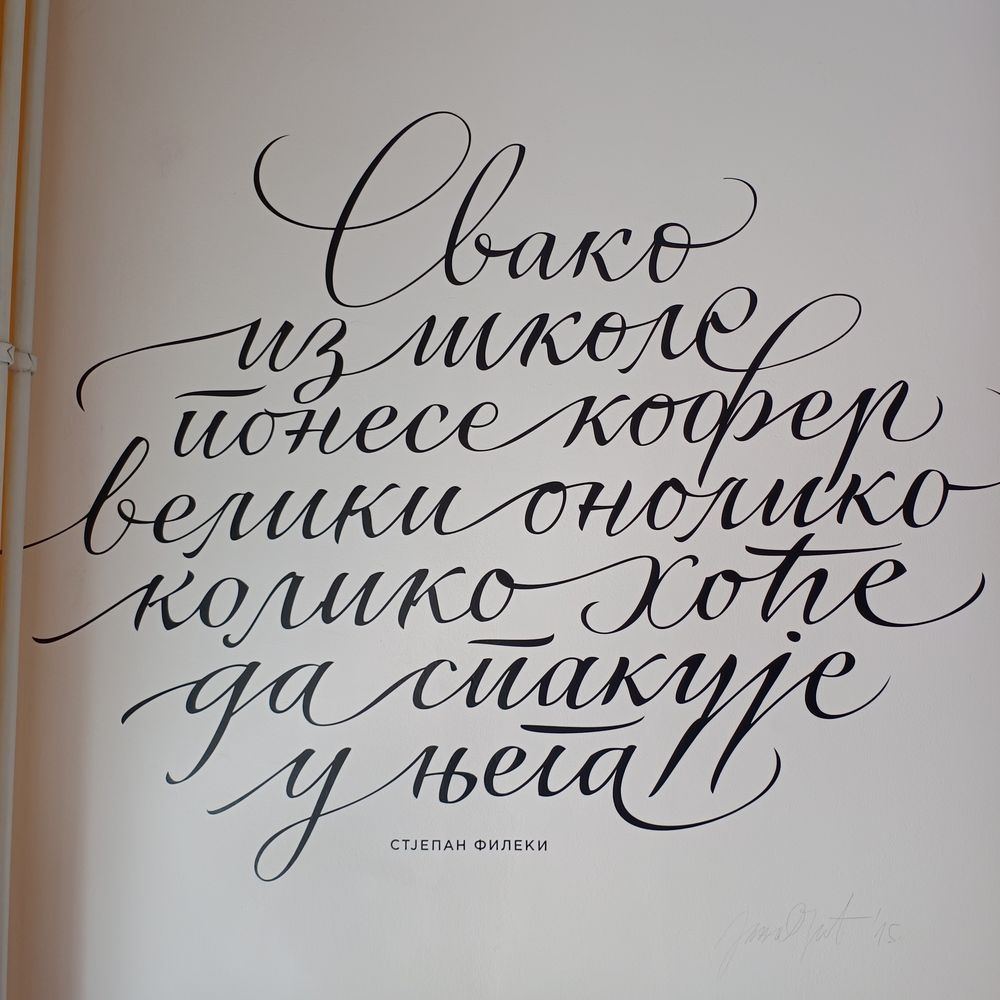 Свако
из школе
понесе кофер
велики онолико
колико хоће
да спакује
у њега
СТЈЕПАН ФИЛЕКИ
'15